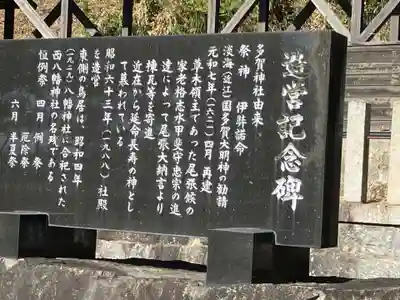 造営記念碑
多賀神社由来
祭神 伊弉諾命
淡海(近江)国多賀大明神の勧請
元和七年(一六二一)四月 再建
草木領主であった尾張候の
家老格志水甲斐守忠宗の進
達によって尾張大納言より
棟瓦等を寄進
近在から延命長寿の神とし
て慕われている
昭和六十三年(一九八八)社殿
を造営
東側の鳥居は、昭和四年
(一九二九)八幡神社に合祀された
西八幡神社の名残である
恒例祭 四月 例祭
厄除祭
六月 半夏祭